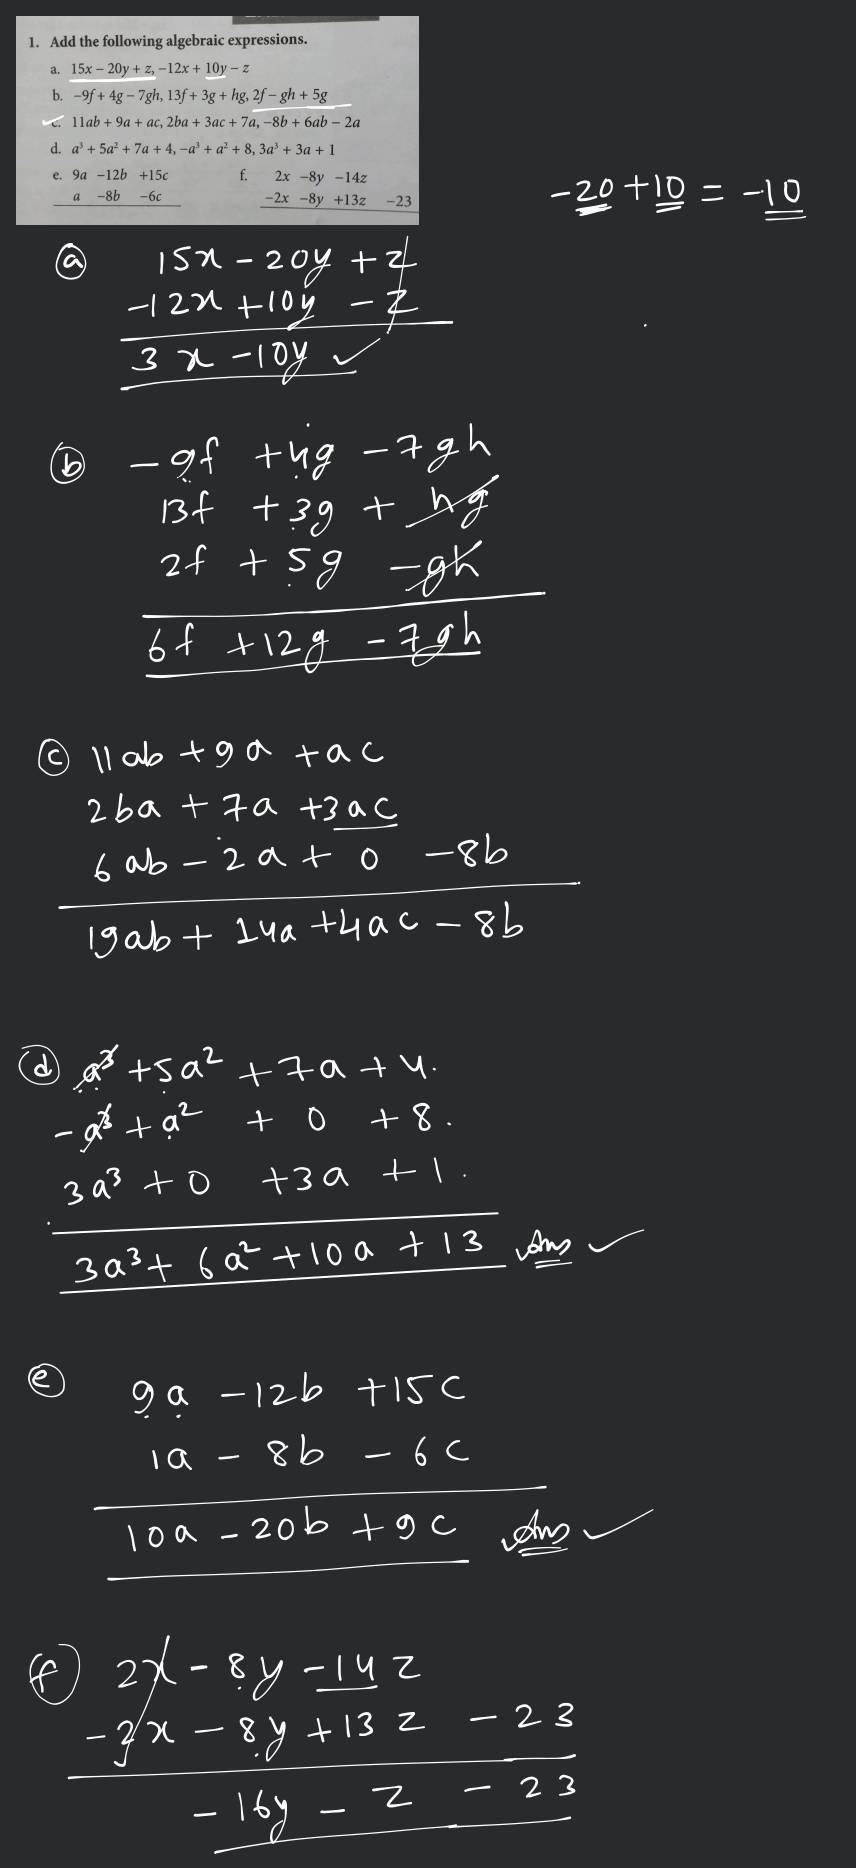 1. Add the following algebraic expressions.
a. 15x – 20y + z, –12x + 10y – z
b. –9f + 4g – 7gh, 13f + 3g + hg, 2f – gh + 5g
c. 11ab + 9a + ac, 2ba + 3ac + 7a, –8b + 6ab – 2a
d. a³ + 5a² + 7a + 4, –a³ + a² + 8, 3a³ + 3a + 1
e. 9a –12b +15c
a –8b –6c
f. 2x –8y –14z
–2x –8y +13z –23
-20 + 10 = -10
(a) 15x - 20y + z
-12x + 10y - z
3x - 10y ✓
(b) -9f + 4g - 7gh
13f + 3g + hg
2f + 5g - gh
6f + 12g - 7gh
(c) 11ab + 9a + ac
2ba + 7a + 3ac
6ab - 2a + 0 - 8b
19ab + 14a + 4ac - 8b
(d) a³ + 5a² + 7a + 4.
-a³ + a² + 0 + 8.
3a³ + 0 + 3a + 1.
3a³ + 6a² + 10a + 13 Ans ✓
(e) 9a - 12b + 15c
1a - 8b - 6c
10a - 20b + 9c Ans ✓
(f) 2x - 8y - 14z
-2x - 8y + 13z - 23
-16y - z - 23